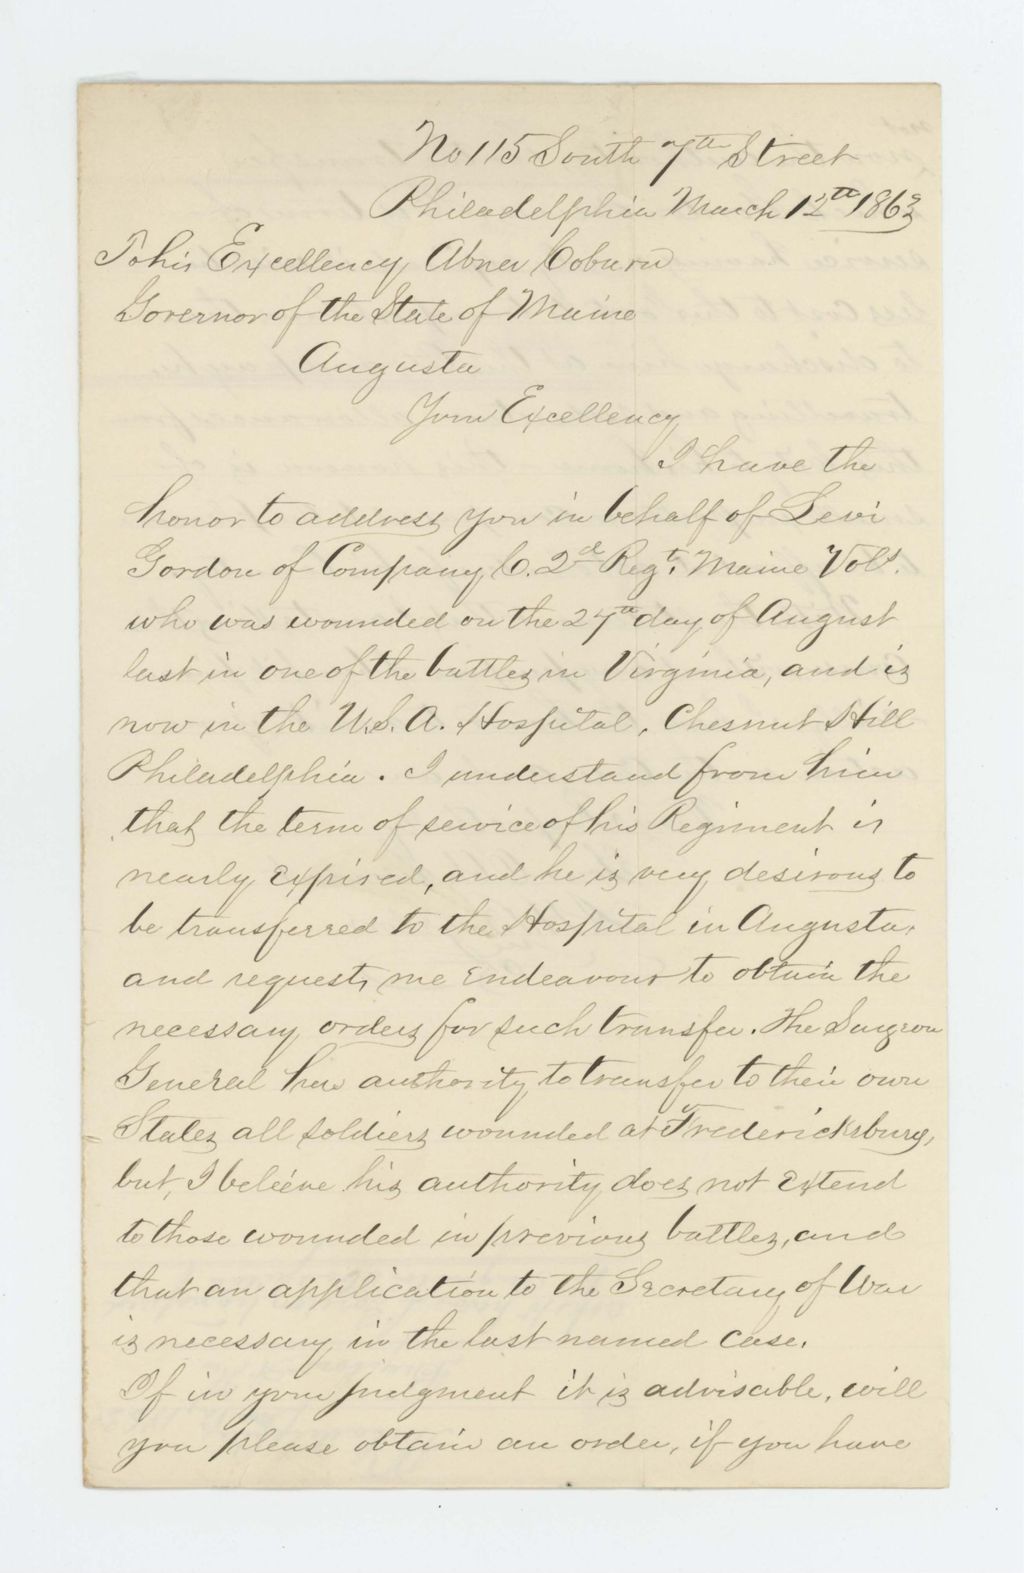 No 115 South 7th Street
Philadelphia March 12th 1863
To his Excellency Abner Coburn
Governor of the State of Maine
Augusta
Your Excellency
I have the
honor to address you in behalf of Levi
Gordon of Company C. 2d Regt. Maine Vols.
who was wounded on the 27th day of August
last in one of the battles in Virginia, and is
now in the U.S.A. Hospital, Chesnut Hill
Philadelphia. I understand from him
that the term of service of his Regiment is
nearly expired, and he is very desirous to
be transferred to the Hospital in Augusta,
and requests me endeavour to obtain the
necessary orders for such transfer. The Surgeon
General has authority to transfer to their own
States all soldiers wounded at Fredericksburg,
but, I beleive his authority does not extend
to those wounded in previous battles, and
that an application to the Secretary of War
is necessary in the last named case.
If in your judgment it is advisable, will
you please obtain an order, if you have